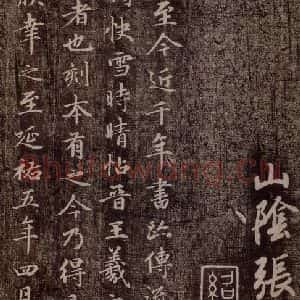 山陰張
至今近千年書跡傳流
快雪時晴帖晉王羲之
者也刻本有之今乃得見
幸之至延祐五年四月